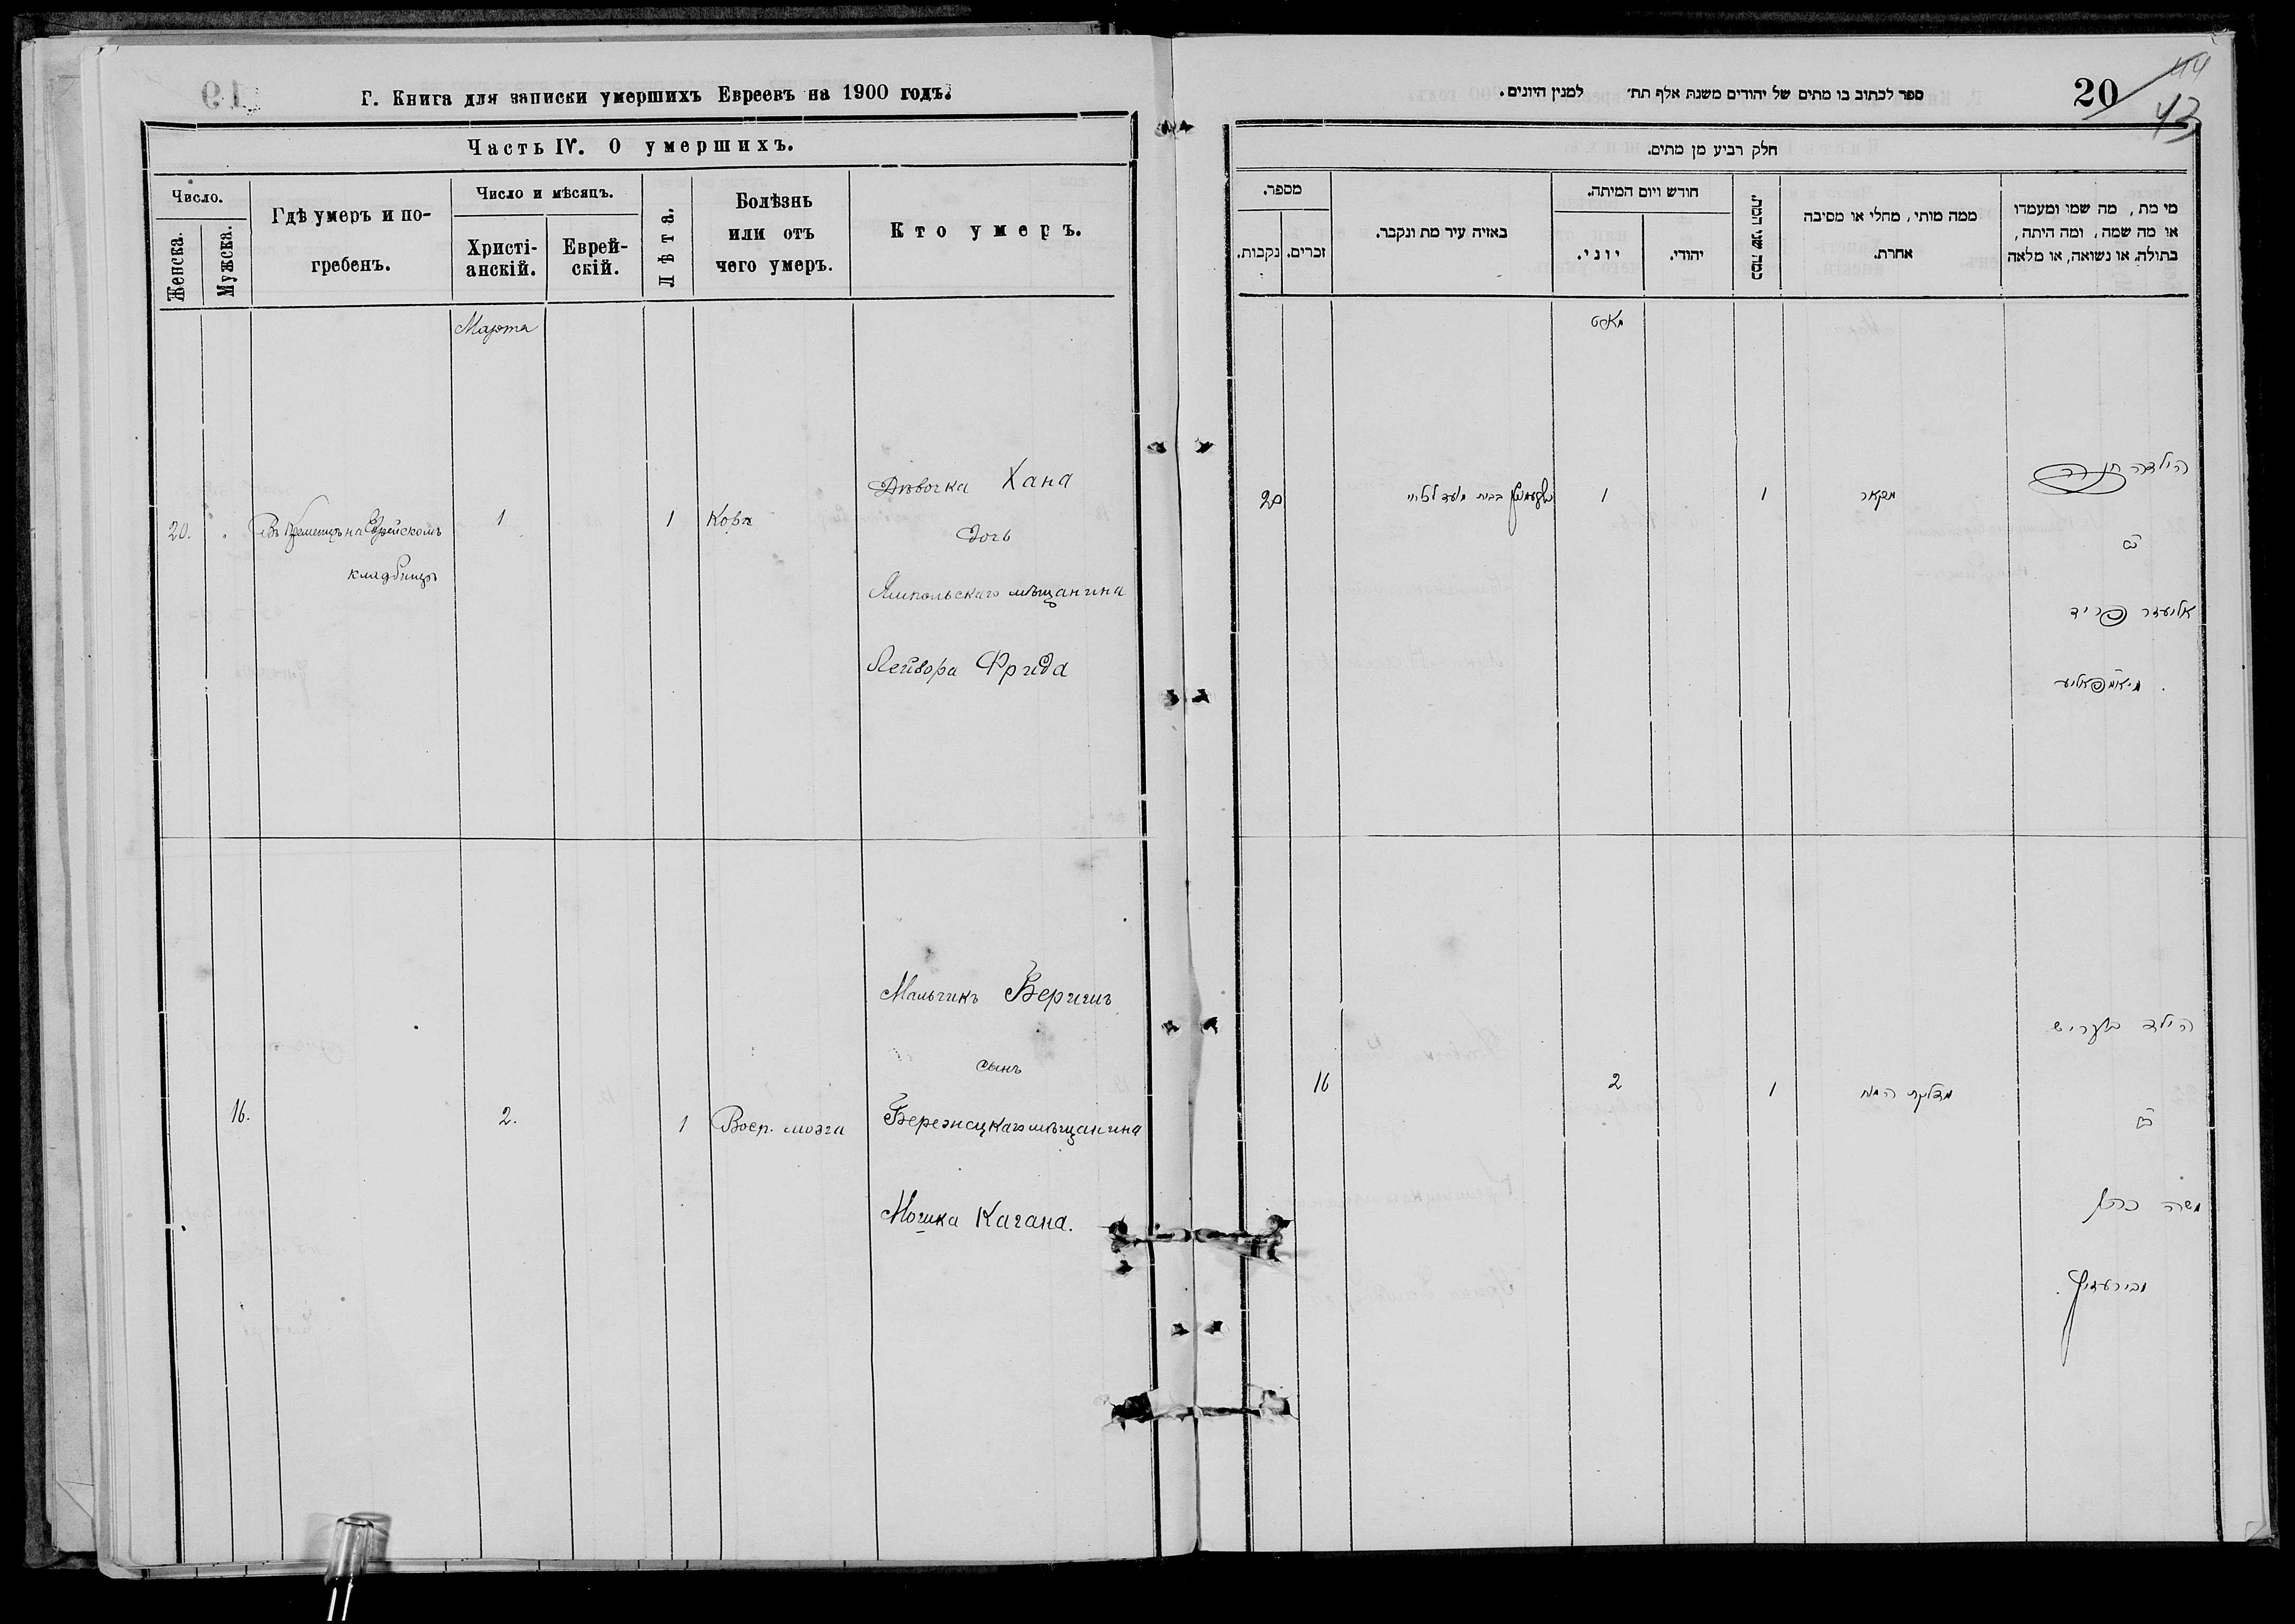 Г. Книга для записки умершихъ Евреевъ на 1900 годъ.
Часть IV. О умершихъ.
Число.
Женска.
Мужска.
Гдѣ умеръ и по-
гребенъ.
Число и мѣсяцъ.
Христі-
анскій.
Еврей-
скій.
Лѣта.
Болѣзнь
или отъ
чего умеръ.
Кто умеръ.
Марта
20.
Въ Кременцѣ на Еврейскомъ
кладбищѣ
1
1
Корь
Дѣвочка Хана
дочь
Ямпольскаго мѣщанина
Лейзора Фрида
16.
2.
1
Восп. мозга
Мальчикъ Беришъ
сынъ
Бережецкаго мѣщанина
Мошка Кагана.
20
44
43
ספר לכתוב בו מתים של יהודים משנת אלף תת׳ למנין היונים.
חלק רביע מן מתים.
מספר.
נקבות.
זכרים.
באזיה עיר מת ונקבר.
חודש ויום המיתה.
יוני.
יהודי.
כמה שני המת.
ממה מותי, מחלי או מסיבה
אחרת.
מי מת, מה שמו ומעמדו
או מה שמה, ומה היתה,
בתולה או נשואה, או מלאה
מארט
20
1
1
הילדה חנה
בת
אליעזר פריד
מיאמפאליע
16
2
1
מדלקת המח
הילד בעריש
בן
משה כהן